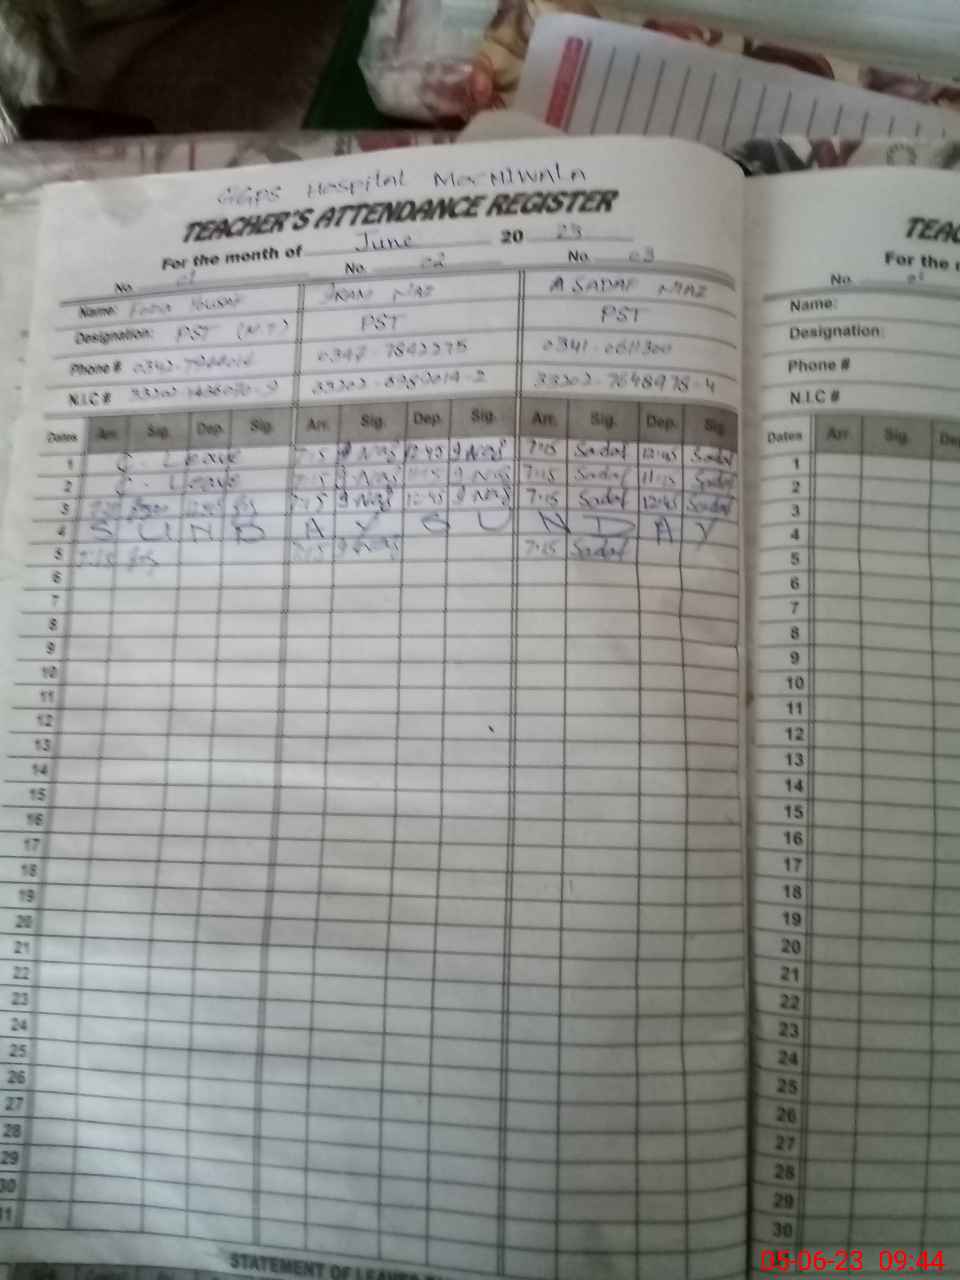 GGPS Hospital Mochiwala
TEACHER'S ATTENDANCE REGISTER
For the month of June 20 23
No. 01 No. 02 No. 03
Name: Naz A SADAF NIAZ
Designation: PST (N.T) PST PST
Phone # 0342- 0347-7842275 0341-0611300
N.I.C # 33202- 33202- -2 33202-7648978-4
Dates Arr. Sig. Dep. Sig. Arr. Sig. Dep. Sig. Arr. Sig. Dep. Sig.
1 C. Leave 7:15 Naz 12:45 Naz 7:15 Sadaf 12:45 Sadaf
2 C. Leave 7:15 Naz 11:15 Naz 7:15 Sadaf 11:15 Sadaf
3 7:15 Naz 12:45 Naz 7:15 Sadaf 12:45 Sadaf
4 S U N D A Y S U N D A Y
5 7:15 7:15 Naz 7:15 Sadaf
6
7
8
9
10
11
12
13
14
15
16
17
18
19
20
21
22
23
24
25
26
27
28
29
30
31
STATEMENT OF LEAVES
TEAC
For the
No. 01
Name:
Designation:
Phone #
N.I.C #
Dates Arr. Sig. Dep
1
2
3
4
5
6
7
8
9
10
11
12
13
14
15
16
17
18
19
20
21
22
23
24
25
26
27
28
29
30
05-06-23 09:44